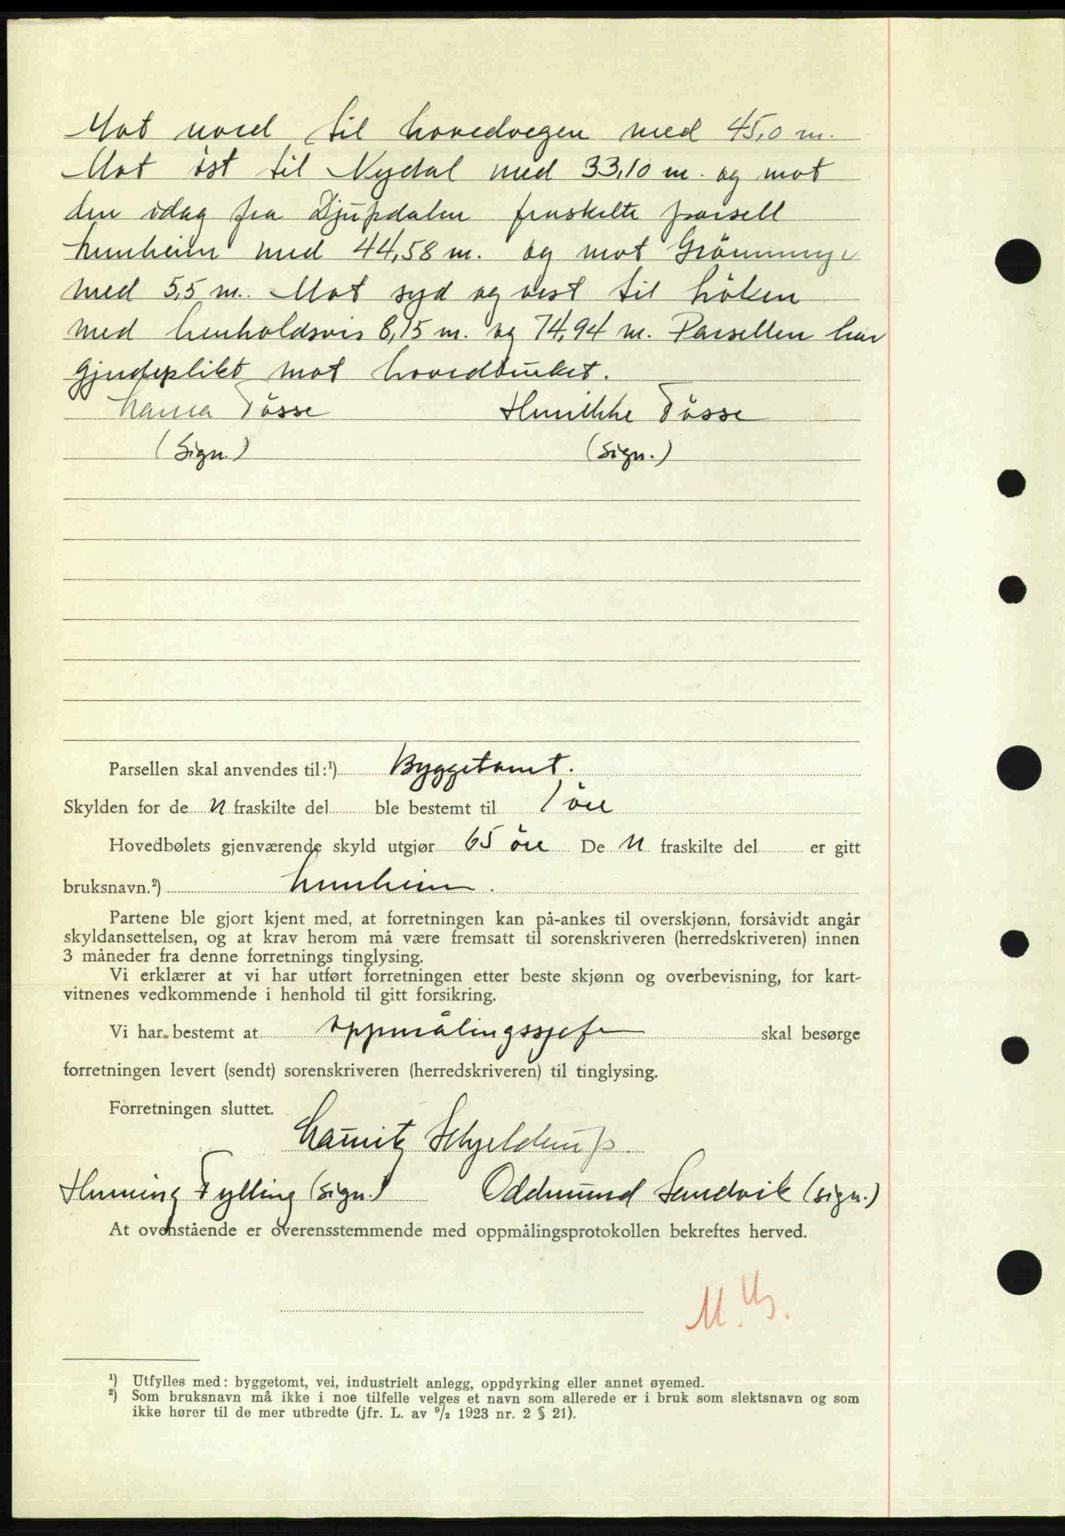 Mot nord til hovedvegen med 45,0 m.
Mot øst til Nydal med 33,10 m. og mot
den idag fra Djupdalen fraskilte parsell
med 44,58 m. og mot
med 5,5 m. Mot syd og vest til
med henholdsvis 8,15 m. og 74,94 m. Parsellen har
gjerdeplikt mot hovedbruket.
Tøsse Tøsse
(Sign.) (Sign.)
Parsellen skal anvendes til:¹) Byggetomt.
Skylden for den fraskilte del ble bestemt til 1 øre
Hovedbølets gjenværende skyld utgjør 65 øre Den fraskilte del er gitt
bruksnavn.²)
Partene ble gjort kjent med, at forretningen kan på-ankes til overskjønn, forsåvidt angår
skyldansettelsen, og at krav herom må være fremsatt til sorenskriveren (herredskriveren) innen
3 måneder fra denne forretnings tinglysing.
Vi erklærer at vi har utført forretningen etter beste skjønn og overbevisning, for kart-
vitnenes vedkommende i henhold til gitt forsikring.
Vi har bestemt at oppmålingssjefen skal besørge
forretningen levert (sendt) sorenskriveren (herredskriveren) til tinglysing.
Forretningen sluttet.
Lauritz Schjelderup.
Henning Tylling (sign.) Oddmund Sandvik (sign.)
At ovenstående er overensstemmende med oppmålingsprotokollen bekreftes herved.
¹) Utfylles med: byggetomt, vei, industrielt anlegg, oppdyrking eller annet øyemed.
²) Som bruksnavn må ikke i noe tilfelle velges et navn som allerede er i bruk som slektsnavn og som
ikke hører til de mer utbredte (jfr. L. av ⁹/₂ 1923 nr. 2 § 21).